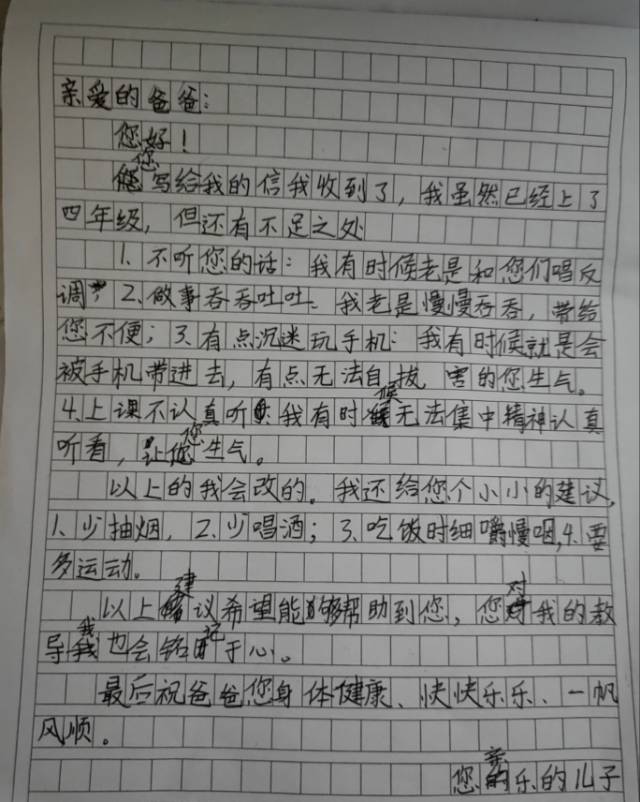 亲爱的爸爸：
您好！
您写给我的信我收到了，我虽然已经上了
四年级，但还有不足之处
1. 不听您的话：我有时候老是和您们唱反
调；2. 做事吞吞吐吐、我老是慢慢吞吞，带给
您不便；3. 有点沉迷玩手机：我有时候就是会
被手机带进去，有点无法自拔 害的您生气。
4. 上课不认真听：我有时候无法集中精神认真
听看，让您生气。
以上的我会改的。我还给您个小小的建议，
1. 少抽烟，2. 少唱酒；3. 吃饭时细嚼慢咽，4. 要
多运动。
以上建议希望能够帮助到您，您对我的教
导我也会铭记于心。
最后祝爸爸您身体健康、快快乐乐、一帆
风顺。
您亲乐的儿子